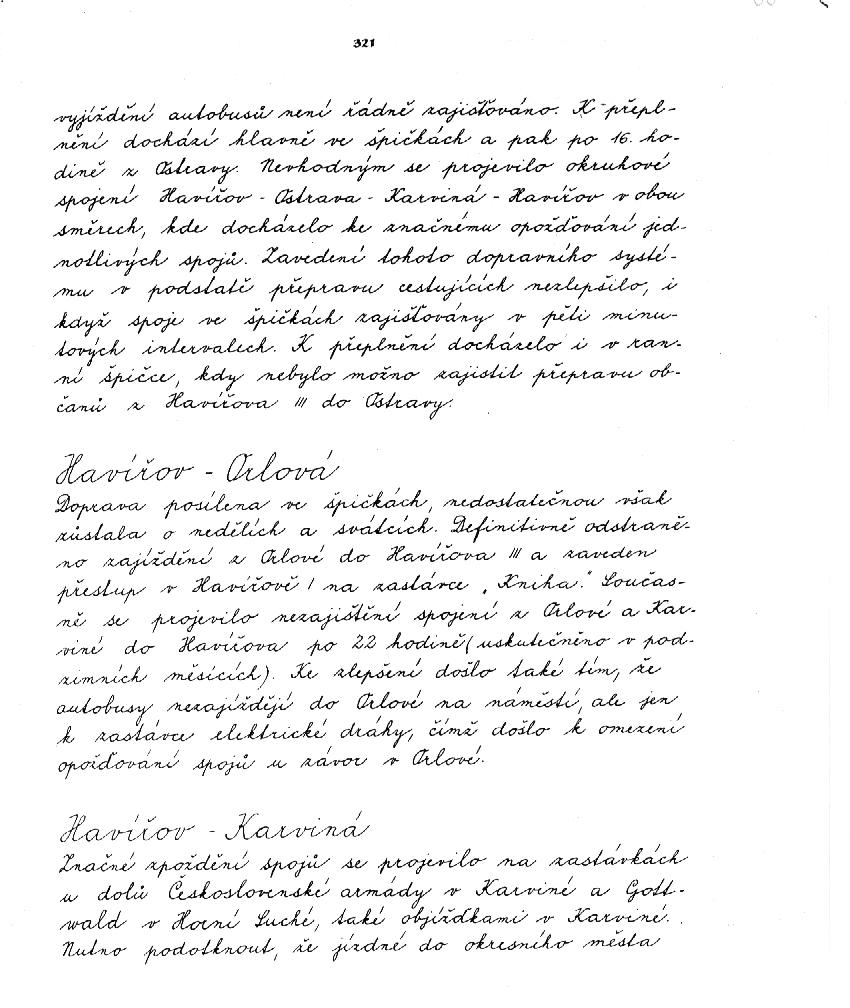 321
vyjíždění autobusů není řádně zajišťováno. K přepl-
nění dochází hlavně ve špičkách a pak po 16. ho-
dině z Ostravy. Nevhodným se projevilo okruhové
spojení Havířov - Ostrava - Karviná - Havířov v obou
směrech, kde docházelo ke značnému opožďování jed-
notlivých spojů. Zavedení tohoto dopravního systé-
mu v podstatě přepravu cestujících nezlepšilo, i
když spoje ve špičkách zajišťovány v pěti minu-
tových intervalech. K přeplnění docházelo i v ran-
ní špičce, kdy nebylo možno zajistit přepravu ob-
čanů z Havířova III do Ostravy.
Havířov - Orlová
Doprava posílena ve špičkách, nedostatečnou však
zůstala o nedělích a svátcích. Definitivně odstraně-
no zajíždění z Orlové do Havířova III a zaveden
přestup v Havířově I na zastávce „Kniha." Součas-
ně se projevilo nezajištění spojení z Orlové a Kar-
viné do Havířova po 22 hodině (uskutečněno v pod-
zimních měsících). Ke zlepšení došlo také tím, že
autobusy nezajíždějí do Orlové na náměstí, ale jen
k zastávce elektrické dráhy, čímž došlo k omezení
opožďování spojů u závor v Orlové.
Havířov - Karviná
Značné zpoždění spojů se projevilo na zastávkách
u dolů Československé armády v Karviné a Gott-
wald v Horní Suché, také objížďkami v Karviné.
Nutno podotknout, že jízdné do okresního města